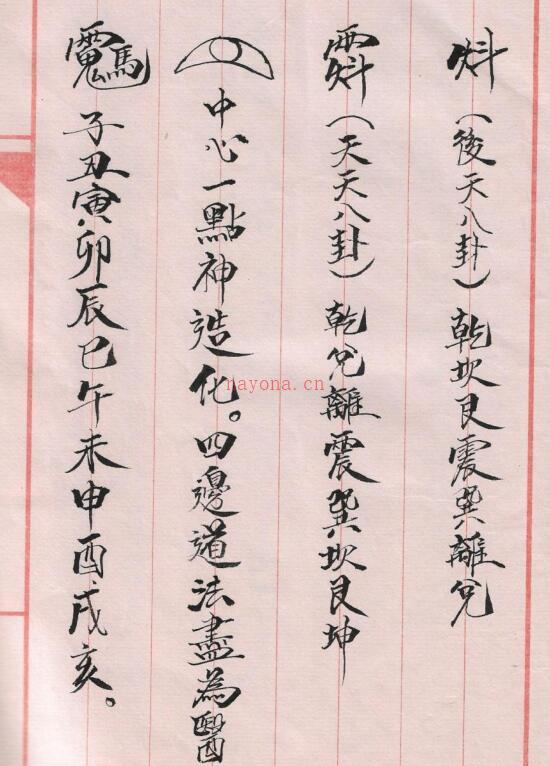 炓(後天八卦)乾坎艮震巽離兌
(天天八卦)乾兌離震巽坎艮坤
中心一點神造化。四邊道法盡為醫
子丑寅卯辰巳午未申酉戌亥。
nayona.cn